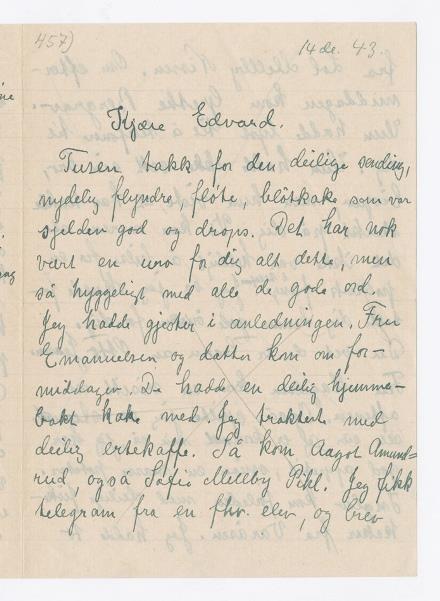 457)
14 de. 43.
Kjære Edvard.
Tusen takk for den deilige sending,
nydelig flyndre, fløte, bløtkake som var
sjelden god og drops. Det har nok
vært en uro for dig alt dette, men
så hyggeligt med alle de gode ord.
Jeg hadde gjester i anledningen. Fru
Emanuelsen og datter kom om for-
middagen. De hadde en deilig hjemme-
bakt kake med. Jeg traktert med
deilig ertekaffe. Så kom Aagot Amund-
rud, også Sofie Mellby Pihl. Jeg fikk
telegram fra en fhv. elev, og brev